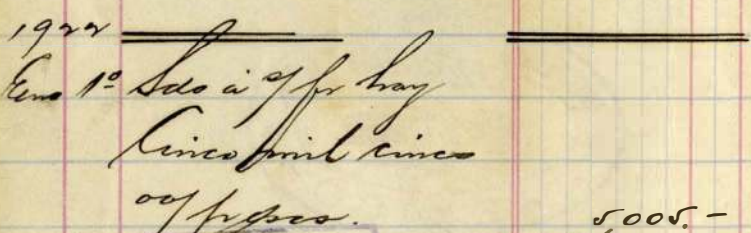 1922
Eno 1º Sdo á s/ fr hoy
Cinco mil cinco
00/ fr pscs. 5,005.-